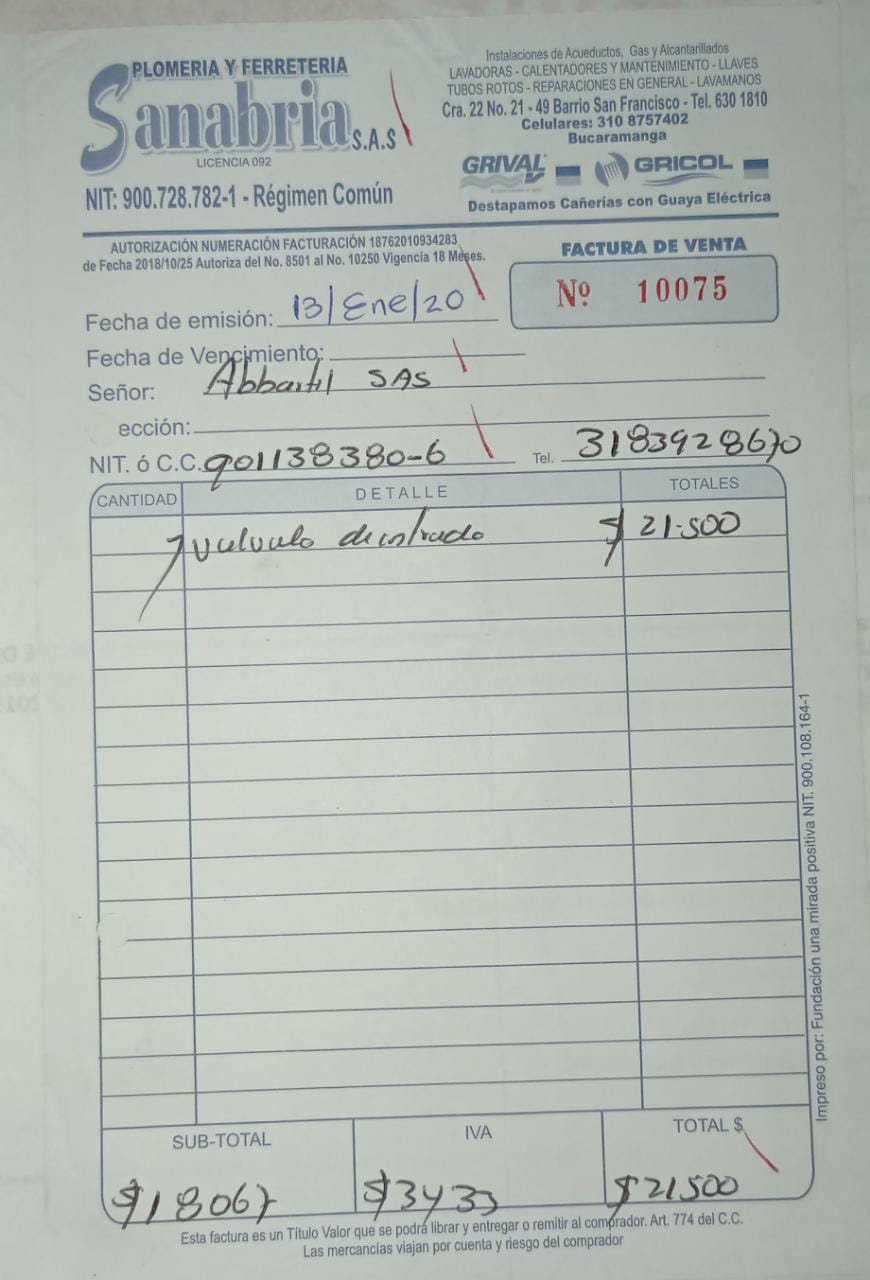 PLOMERIA Y FERRETERIA
Sanabria S.A.S
LICENCIA 092
NIT: 900.728.782-1 - Régimen Común
Instalaciones de Acueductos, Gas y Alcantarillados
LAVADORAS - CALENTADORES Y MANTENIMIENTO - LLAVES
TUBOS ROTOS - REPARACIONES EN GENERAL - LAVAMANOS
Cra. 22 No. 21 - 49 Barrio San Francisco - Tel. 630 1810
Celulares: 310 8757402
Bucaramanga
GRIVAL GRICOL
Destapamos Cañerías con Guaya Eléctrica
AUTORIZACIÓN NUMERACIÓN FACTURACIÓN 18762010934283
de Fecha 2018/10/25 Autoriza del No. 8501 al No. 10250 Vigencia 18 Meses.
FACTURA DE VENTA
Nº 10075
Fecha de emisión: 13/Ene/20
Fecha de Vencimiento:
Señor: SAS
ección:
NIT. ó C.C. 901138380-6 Tel. 3183928670
CANTIDAD DETALLE TOTALES
1 $ 21.500
SUB-TOTAL IVA TOTAL $
$18067 $3433 $21500
Esta factura es un Título Valor que se podrá librar y entregar o remitir al comprador. Art. 774 del C.C.
Las mercancias viajan por cuenta y riesgo del comprador
Impreso por: Fundación una mirada positiva NIT. 900.108.164-1